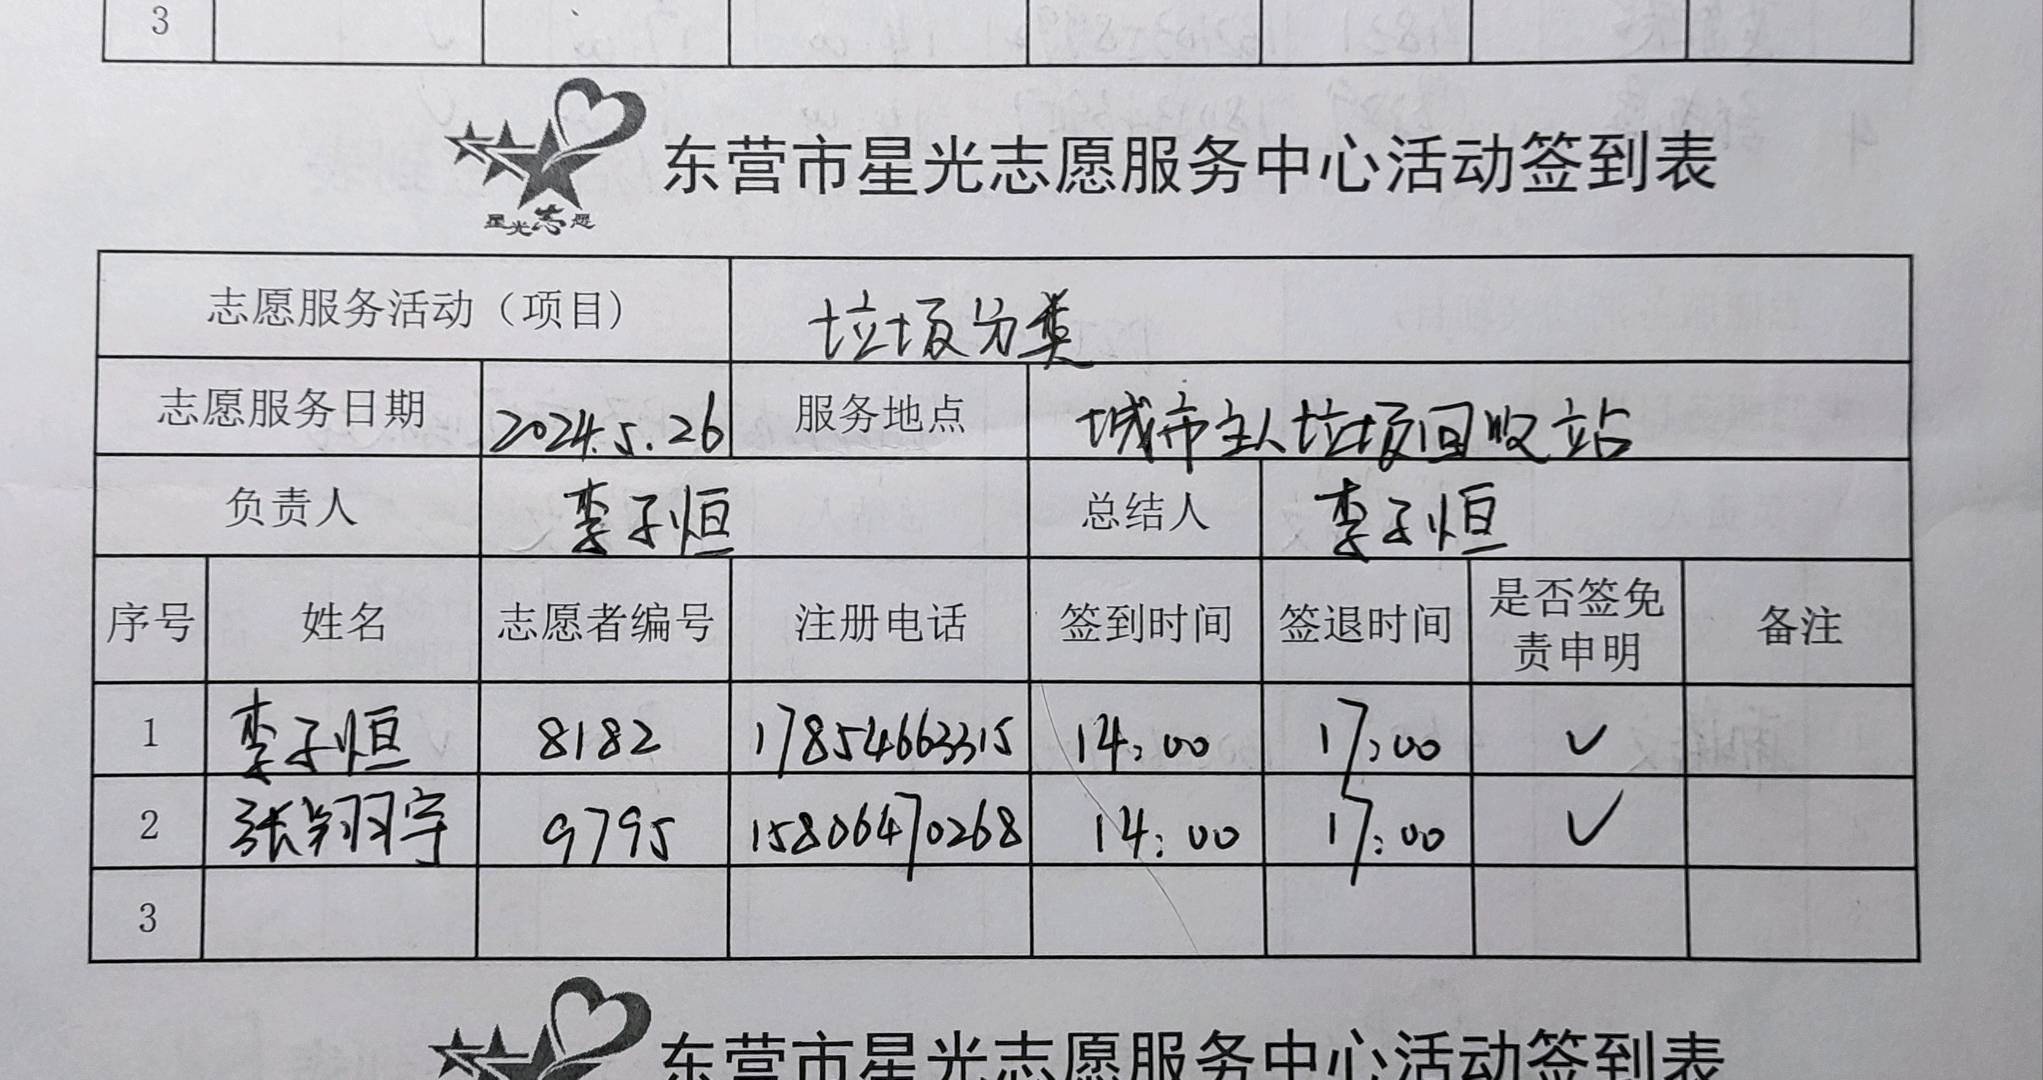 3
星光志愿
东营市星光志愿服务中心活动签到表
志愿服务活动（项目） 垃圾分类
志愿服务日期 2024.5.26 服务地点 城市主人垃圾回收站
负责人 李子恒 总结人 李子恒
序号 姓名 志愿者编号 注册电话 签到时间 签退时间 是否签免 备注
责申明
1 李子恒 8182 17854663315 14:00 17:00 ✓
2 张翔宇 9795 15806470268 14:00 17:00 ✓
3
东营市星光志愿服务中心活动签到表